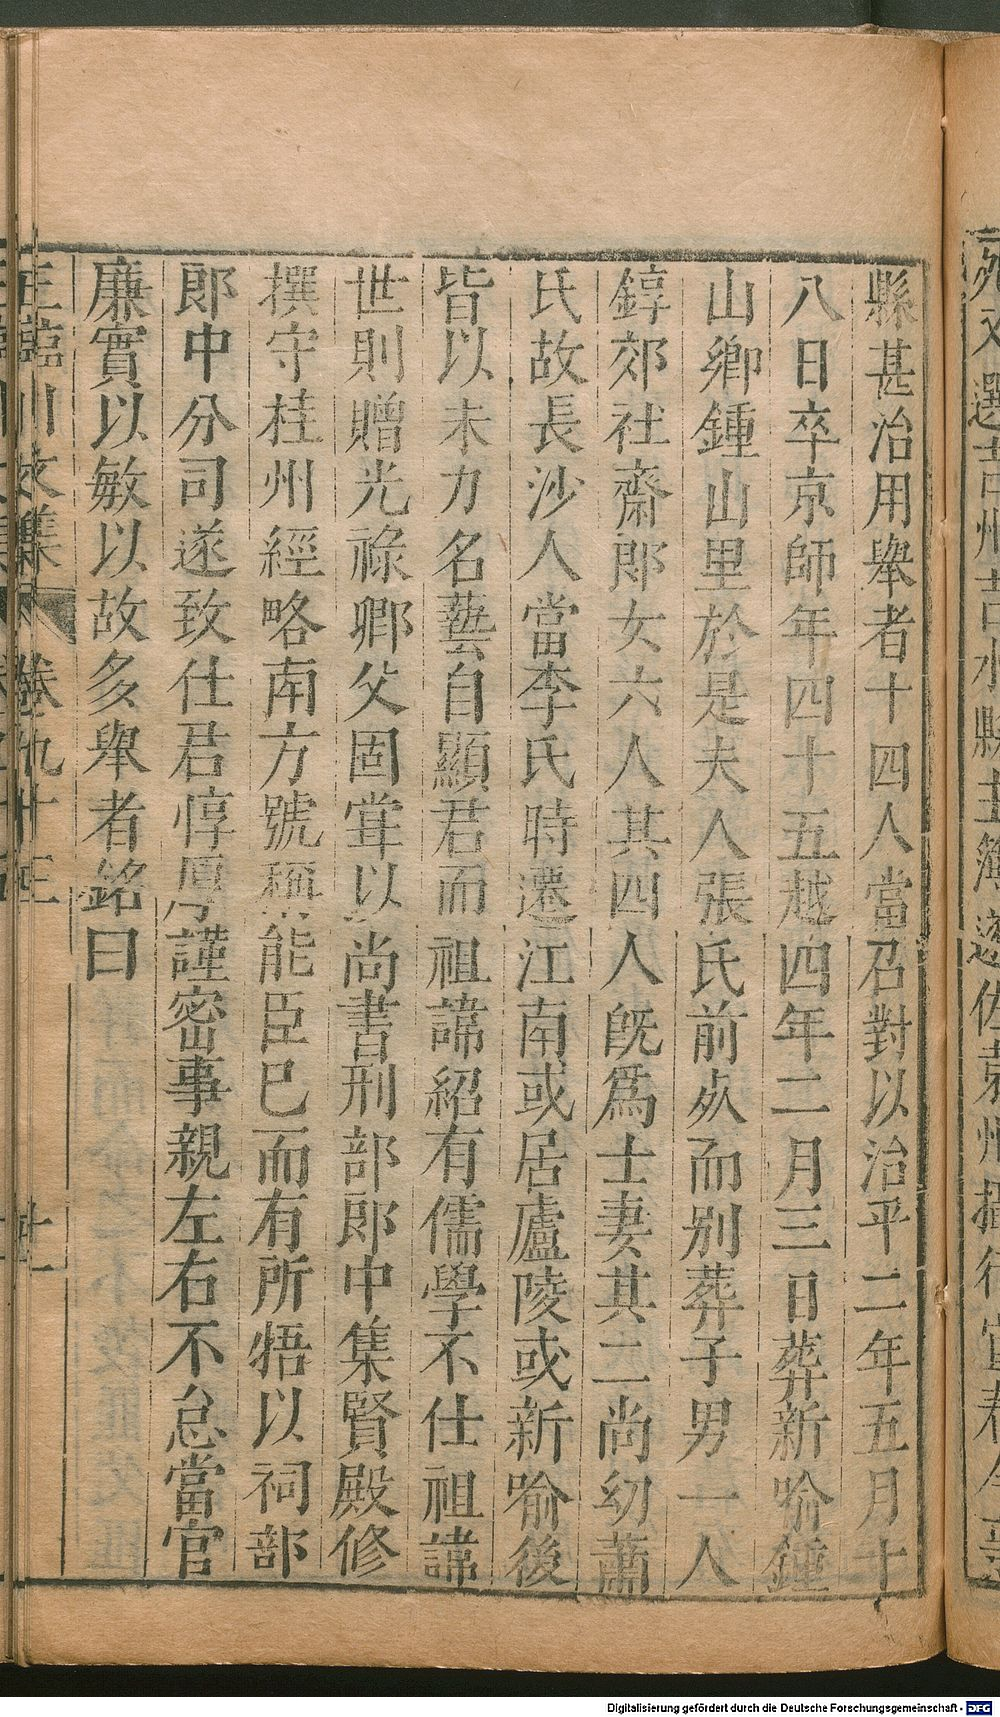 縣甚治用舉者十四人當召對以治平二年五月十
八日卒京師年四十五越四年二月三日葬新喻鍾
山鄉鍾山里於是夫人張氏前夙而別葬子男一人
錞郊社齋郎女六人其四人旣爲士妻其二尚幼蕭
氏故長沙人當李氏時遷江南或居廬陵或新喻後
皆以未力名藝自顯君而祖諱紹有儒學不仕祖諱
世則贈光祿卿父固甞以尚書刑部郎中集賢殿修
撰守桂州經略南方號稱能臣已而有所牾以祠部
郎中分司遂致仕君惇厚謹密事親左右不怠當官
廉實以敏以故多舉者銘曰
王臨川文集 卷九十三 廿一
Digitalisierung gefördert durch die Deutsche Forschungsgemeinschaft - DFG